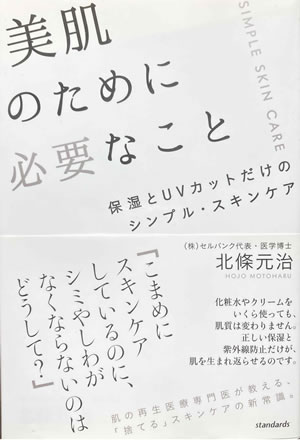 美肌
のために
必要なこと
SIMPLE SKIN CARE
保湿とUVカットだけの
シンプル・スキンケア
(株)セルバンク代表・医学博士
北條元治
HOJO MOTOHARU
『こまめに
スキンケア
しているのに、
シミやしわが
なくならないのは
どうして?』
化粧水やクリームを
いくら使っても、
肌質は変わりません。
正しい保湿と
紫外線防止だけが、
肌を生まれ返らせるのです。
肌の再生医療専門医が教える、
「捨てる」スキンケアの新常識。
standards